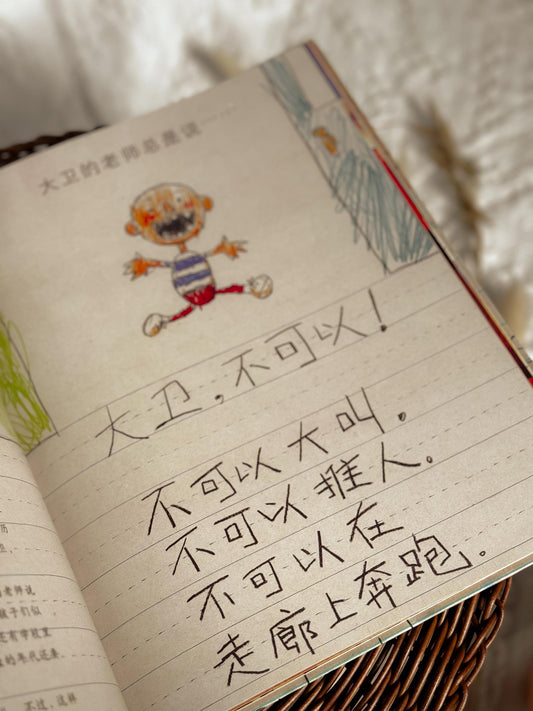 大卫的老师总是说……
大卫，不可以！
不可以大叫。
不可以推人。
不可以在
走廊上奔跑。
老师说
孩子们似
还有学校里
的年代还要
不过，这样